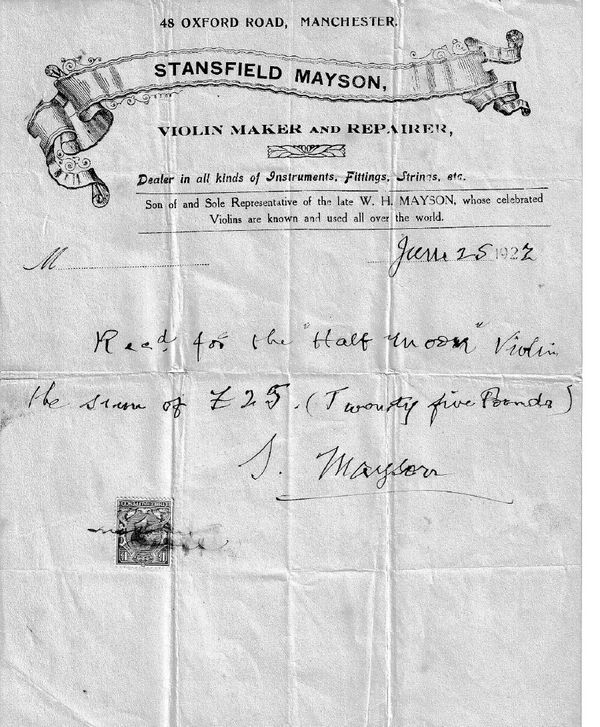 48 OXFORD ROAD, MANCHESTER.
STANSFIELD MAYSON,
VIOLIN MAKER AND REPAIRER,
Dealer in all kinds of Instruments, Fittings, Strings, etc.
Son of and Sole Representative of the late W. H. MAYSON, whose celebrated
Violins are known and used all over the world.
M
June 25 1922
Recd for the "Half Moon" Violin
the sum of £25. (Twenty five Pounds)
S. Mayson